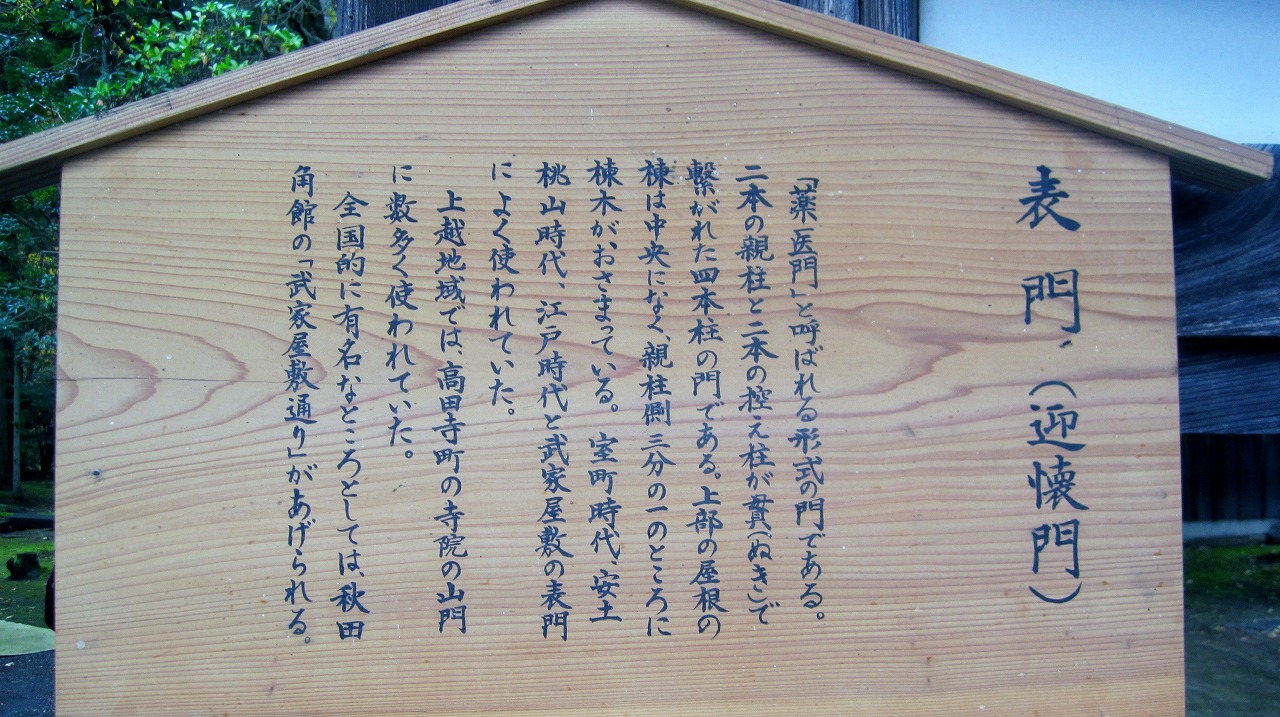 表門（迎懐門）
「薬医門」と呼ばれる形式の門である。
二本の親柱と二本の控え柱が貫（ぬき）で
繋がれた四本柱の門である。上部の屋根の
棟は中央になく、親柱側三分の一のところに
棟木が、おさまっている。室町時代、安土
桃山時代、江戸時代と武家屋敷の表門
によく使われていた。
上越地域では、高田寺町の寺院の山門
に数多く使われていた。
全国的に有名なところとしては、秋田
角館の「武家屋敷通り」があげられる。